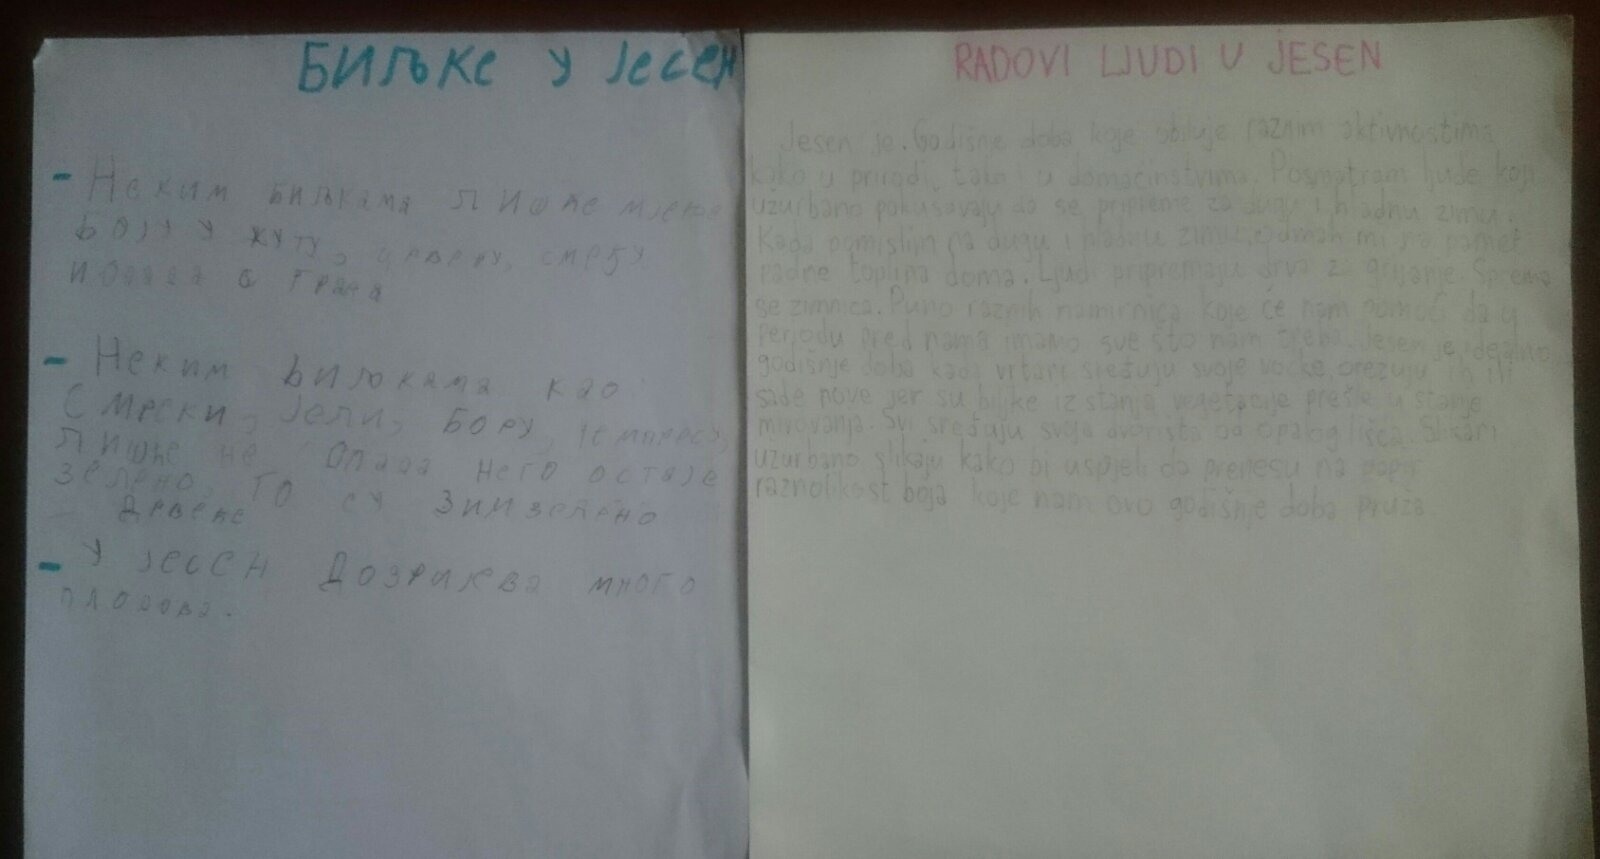 Биљке у јесен
- Неким биљкама лишће мјења
боју у жуту, црвену, смеђу
и опада с грана
- Неким биљкама као
смрски, јели, бору, чемпресу,
лишће не опада него остаје
зелено, то су зимзелено
дрвеће
- У јесен дозријева много
плодова.
RADOVI LJUDI U JESEN
Jesen je. Godišne doba koje obiluje raznim aktivnostima
kako u prirodi, tako i u domaćinstvima. Posmatram ljude koji
užurbano pokušavaju da se pripreme za dugu i hladnu zimu.
Kada pomislim na dugu i hladnu zimu, odmah mi na pamet
padne toplina doma. Ljudi pripremaju drva za grijanje. Sprema
se zimnica. Puno raznih namirnica koje će nam pomoći da u
periodu pred nama imamo sve što nam treba. Jesen je idealno
godišnje doba kada vrtari sređuju svoje voćke, orezuju ih ili
sade nove jer su biljke iz stanja vegetacije prešle u stanje
mirovanja. Svi sređuju svoja dvorišta od opalog lišća. Slikari
užurbano slikaju kako bi uspjeli da prenesu na papir
raznolikost boja koje nam ovo godišnje doba pruža